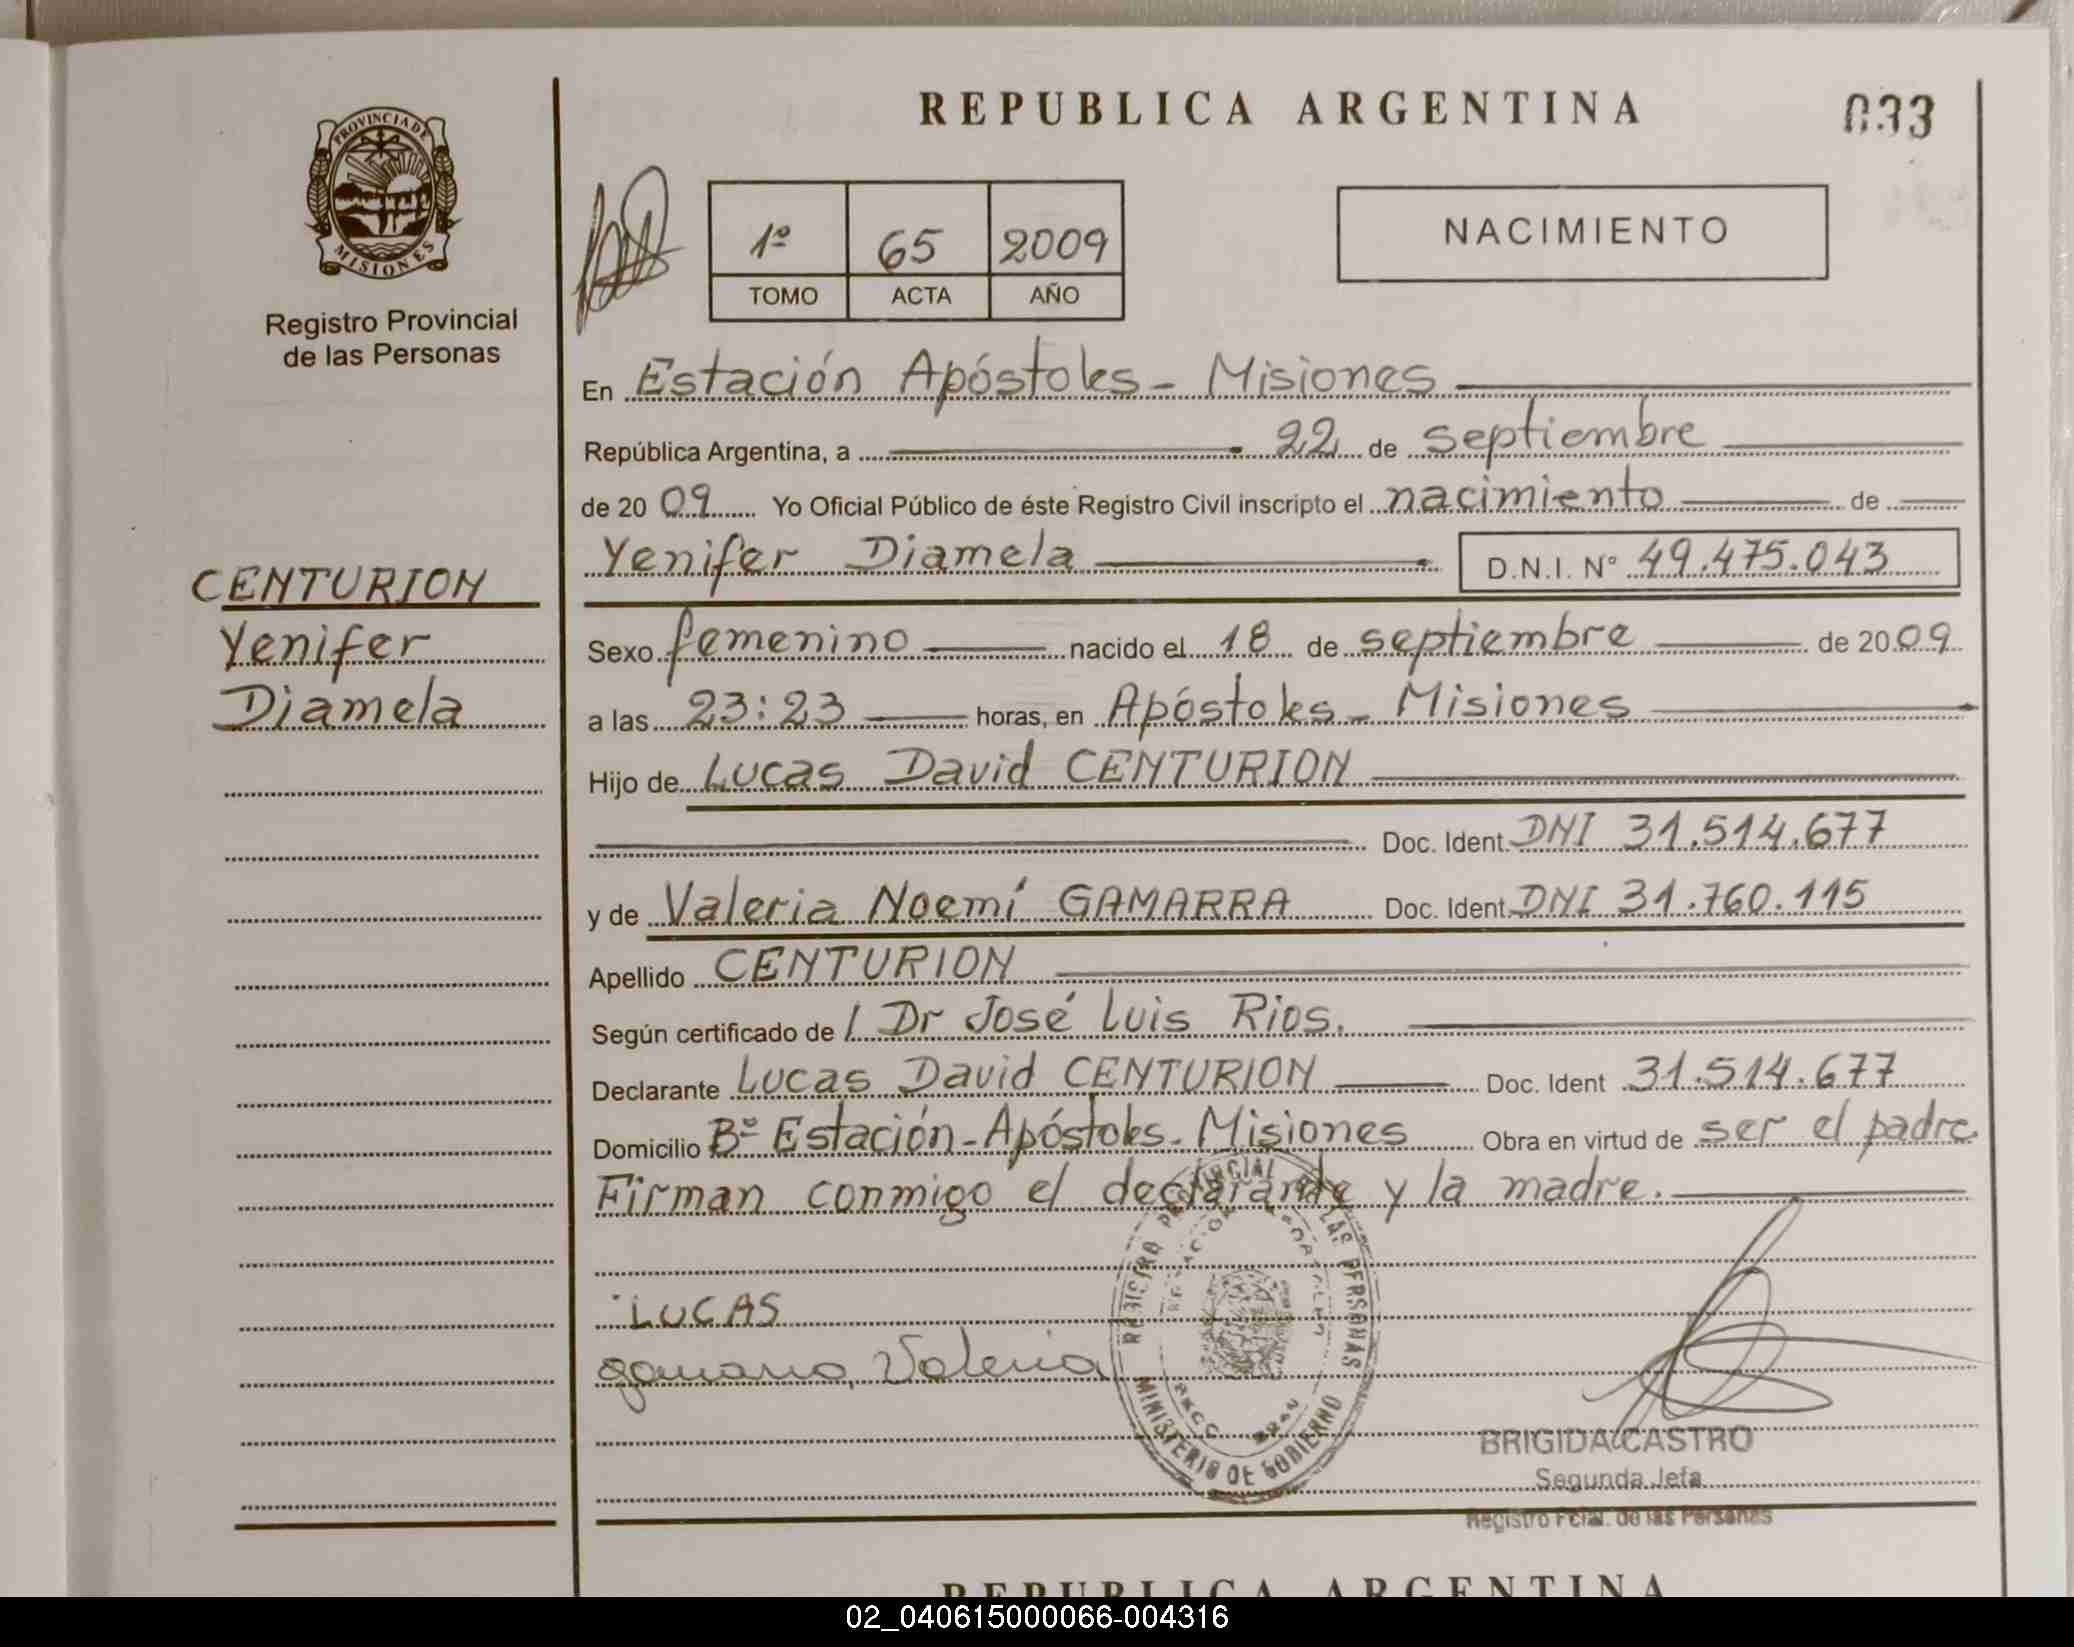 REPUBLICA ARGENTINA
033
PROVINCIA DE
MISIONES
Registro Provincial
de las Personas
1º 65 2009
TOMO ACTA AÑO
NACIMIENTO
En Estación Apóstoles - Misiones
República Argentina, a 22 de septiembre
de 20 09 Yo Oficial Público de éste Registro Civil inscripto el nacimiento de
Yenifer Diamela D.N.I. Nº 49.475.043
CENTURION
Yenifer
Diamela
Sexo femenino nacido el 18 de septiembre de 20 09
a las 23:23 horas, en Apóstoles - Misiones
Hijo de Lucas David CENTURION
Doc. Ident. DNI 31.514.677
y de Valeria Noemí GAMARRA Doc. Ident. DNI 31.760.115
Apellido CENTURION
Según certificado de / Dr José Luis Rios.
Declarante Lucas David CENTURION Doc. Ident 31.514.677
Domicilio Bº Estación - Apóstoles - Misiones Obra en virtud de ser el padre
Firman conmigo el declarante y la madre.
LUCAS
gamarra, Valeria
REGISTRO PROVINCIAL DE LAS PERSONAS
MINISTERIO DE GOBIERNO
BRIGIDA CASTRO
Segunda Jefa
Registro Pcial. de las Personas
REPUBLICA ARGENTINA
02_040615000066-004316